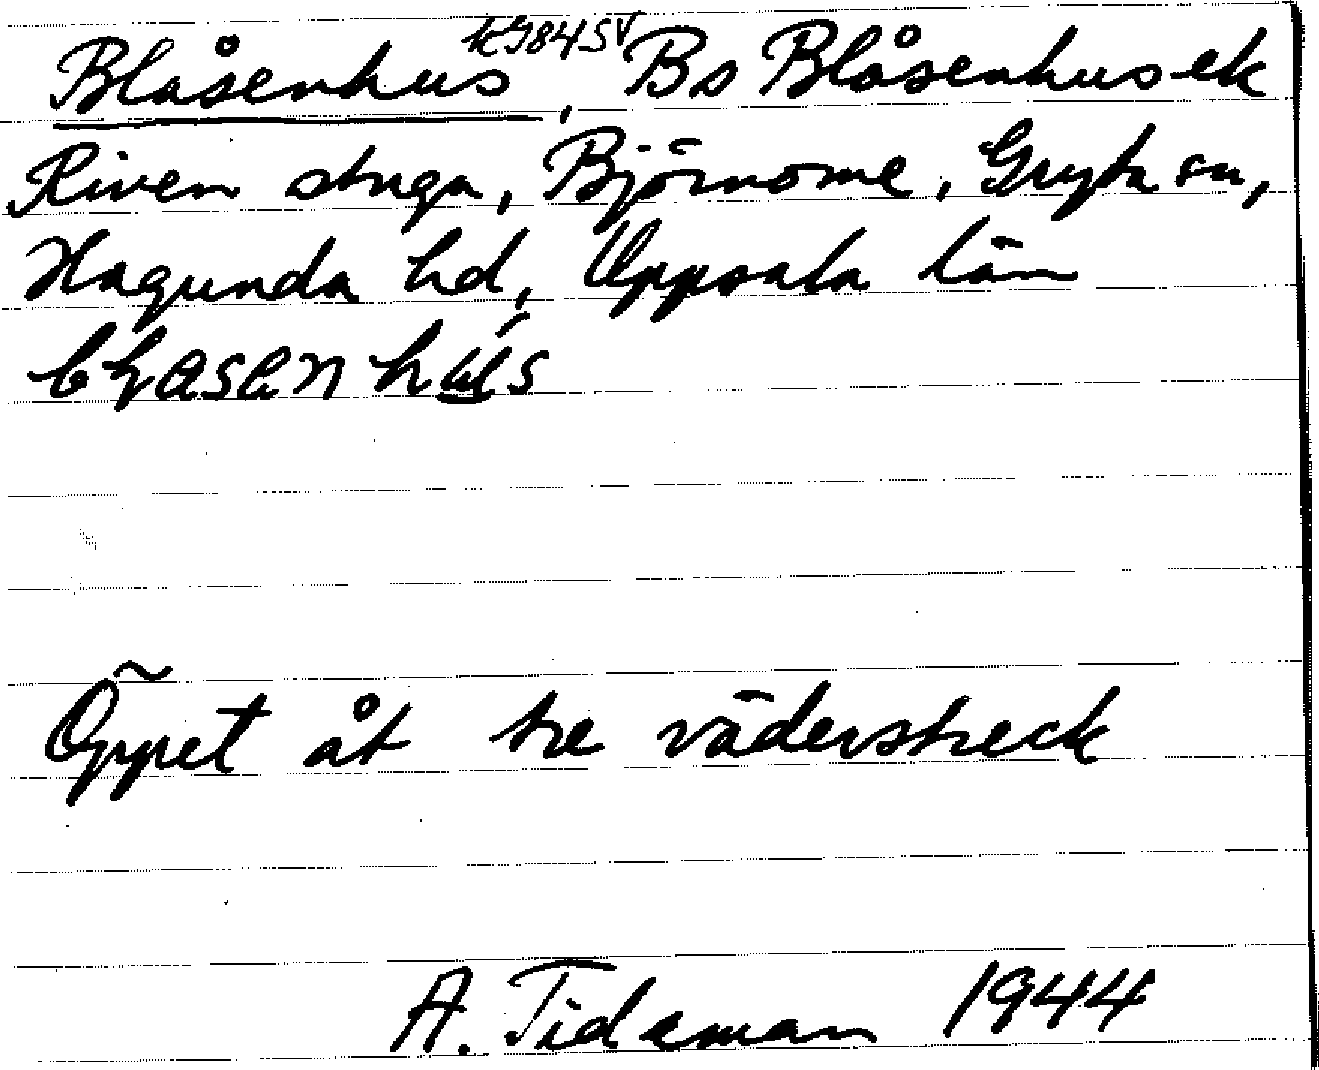 k984SV
Blåsenhus, Bs Blåsenhus ek
Riven stuga, Björnome, Gryta sn,
Hagunda hd, Uppsala län
Öppet åt tre väderstreck
A. Tideman 1944